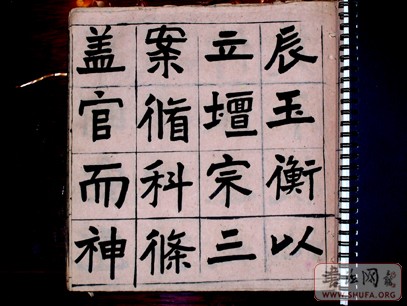 辰玉衡以
立壇宗三
案脩科條
盖官而神
书法网
WWW.SHUFA.ORG